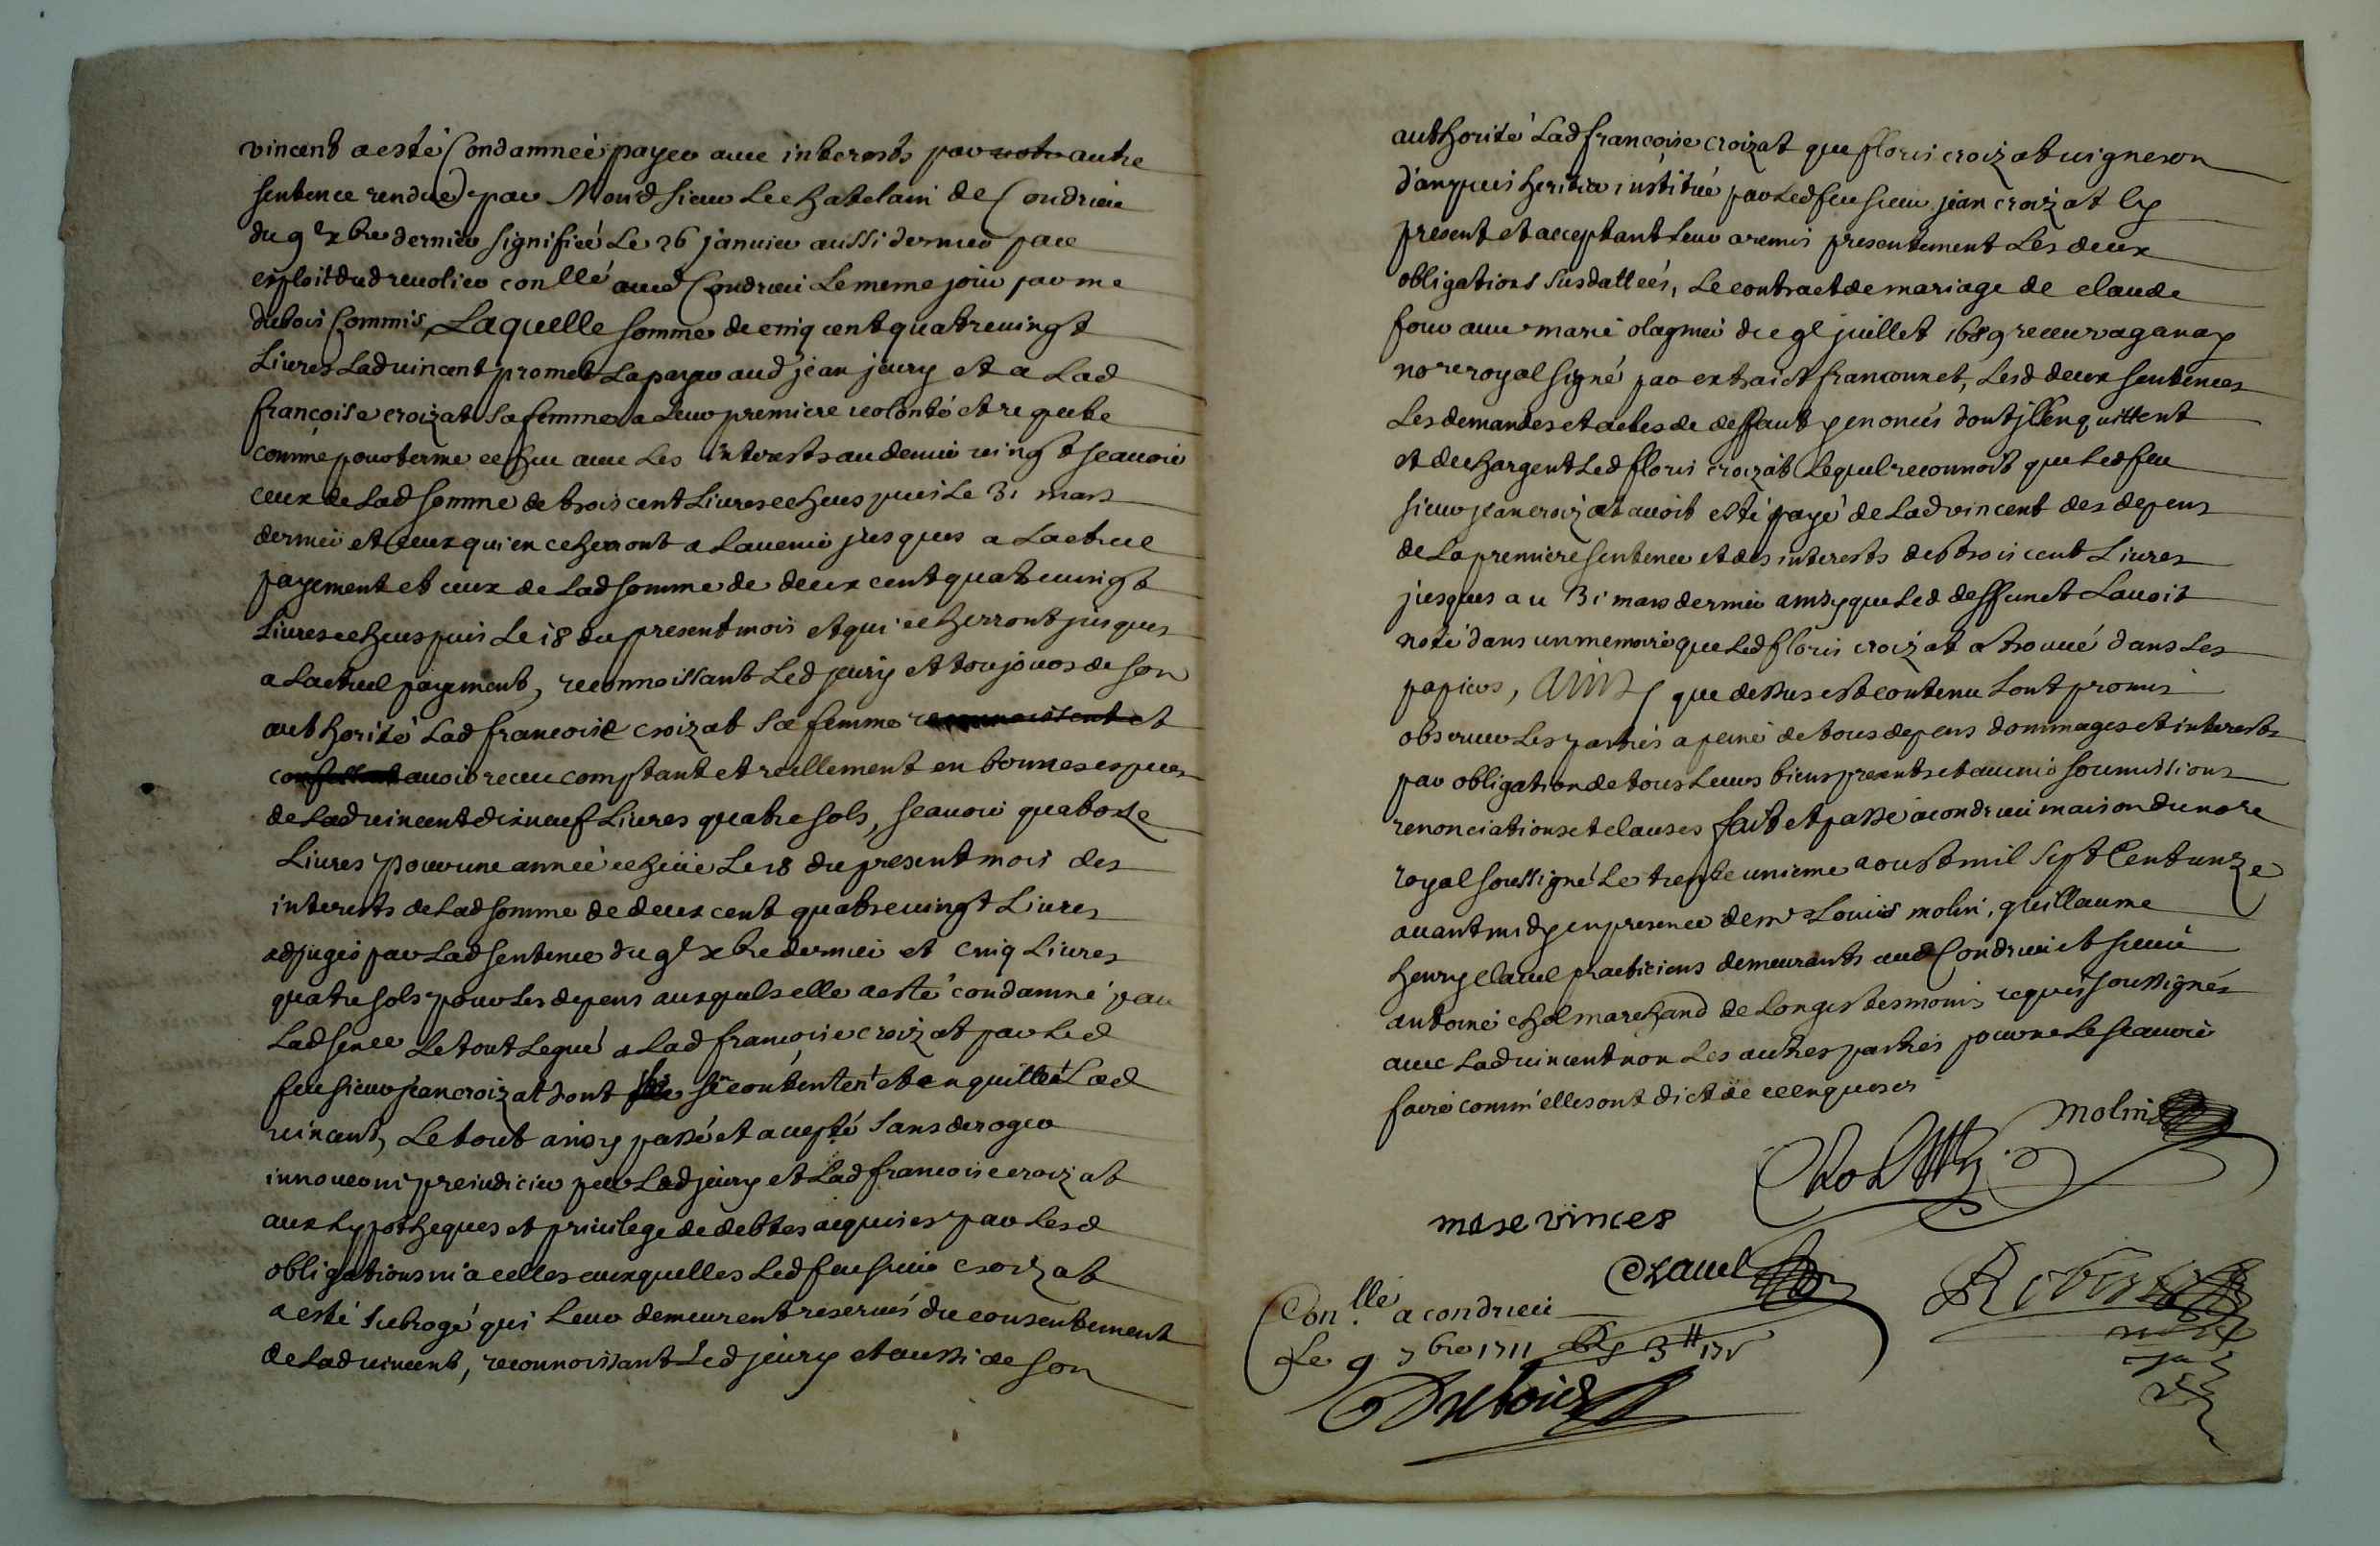 vincent a esté Condamneé payer avec interests par autre
sentence rendue par Mond sieur Le chatelain de Condrieu
du 9e xbre dernier signifieé Le 26 januier aussi dernier par
exploit dud reuolier conllé aud Condrieu Le meme jour par me
dubois Commis, Laquelle somme de cinq cent quatre uingt
Liures Lad uincent promet La payer aud jean jeury et a Lad
françoise croizat sa femme a Leur premiere uolonté et requeste
comme pour terme echeu auec Les interests au denier uingt scauoir
ceux de Lad somme de trois cent Liures echeus puis Le 31 mars
dernier et ceux qui en echerront a Lauenir jusques a Lactuel
payement et ceux de Lad somme de deux cent quatre uingt
Liures echeus puis Le 18 du present mois et qui echerront jusques
a Lactuel payement, reconnoissant Led jeury et toujours de son
authorité Lad francoise croizat sa femme
auoir receu comptant et reellement en bonnes especes
de Lad uincent dixneuf Liures quatre sols, scauoir quatorze
Liures pour une anneé echeüe Le 18 du present mois des
interests de Lad somme de deux cent quatre uingt Liures
adjugés par Lad sentence du 9e xbre dernier et cinq Liures
quatre sols pour Les depens auxquels elle a esté condamné par
Lad sence Le tout Legué a Lad francoise croizat par Led
feu sieur jean croizat dont se contentent et en quittent Lad
uincent, Le tout ainsy passé et accepté sans deroger
innouer ni prejudicier par Led jeury et Lad francoise croizat
aux hypotheques et priuilege de debtes acquises par Lesd
obligations ni a celles auxquelles Led feu sieur croizat
a esté subrogé qui Leur demeurent reserués du consentement
de Lad uincent, reconnoissant Led jeury et aussi de son
authorité Lad francoise croizat que floris croizat uigneron
d'ampuis heritier institué par Led feu sieur jean croizat Cy
present et acceptant Leur a remis presentement Les deux
obligations susdattées, Le contract de mariage de claude
four auec marie olagnier du 9e juillet 1689 receu vaganay
nore royal signé par extraict franconnet, Lesd deux sentences
Les demandes et actes de deffaut y enoncés dont jls en quittent
et dechargent Led floris croizat Lequel reconnoit que Led feu
sieur jean croizat auoit esté payé de Lad vincent des depens
de La premiere sentence et des interests des trois cent Liures
jusques au 31 mars dernier ainsy que Led deffunct Lauoit
noté dans un memoire que Led floris croizat a trouué dans Les
papiers, Ainsy que dessus est contenu L'ont promis
obseruer Les parties a peine de tous depens dommages et interests
par obligation de tous Leurs biens presents et auenir soumissions
renonciations et clauses fait et passé a condrieu maison du nore
royal soussigné Le trente unieme aoust mil sept Cent unze
auant midy en presence de mr Louis molin, guillaume
henry clauel practiciens demeurants aud Condrieu et sieur
antoine chol marchand de Longes tesmoins requis soussignés
auec Lad uincent non Les autres parties pour ne Le scauoir
faire comm' elles ont dict de ce enquises
molin
Chol
mase vinces
Clauel
Conllé a condrieu
Le 9 7bre 1711
Dubois